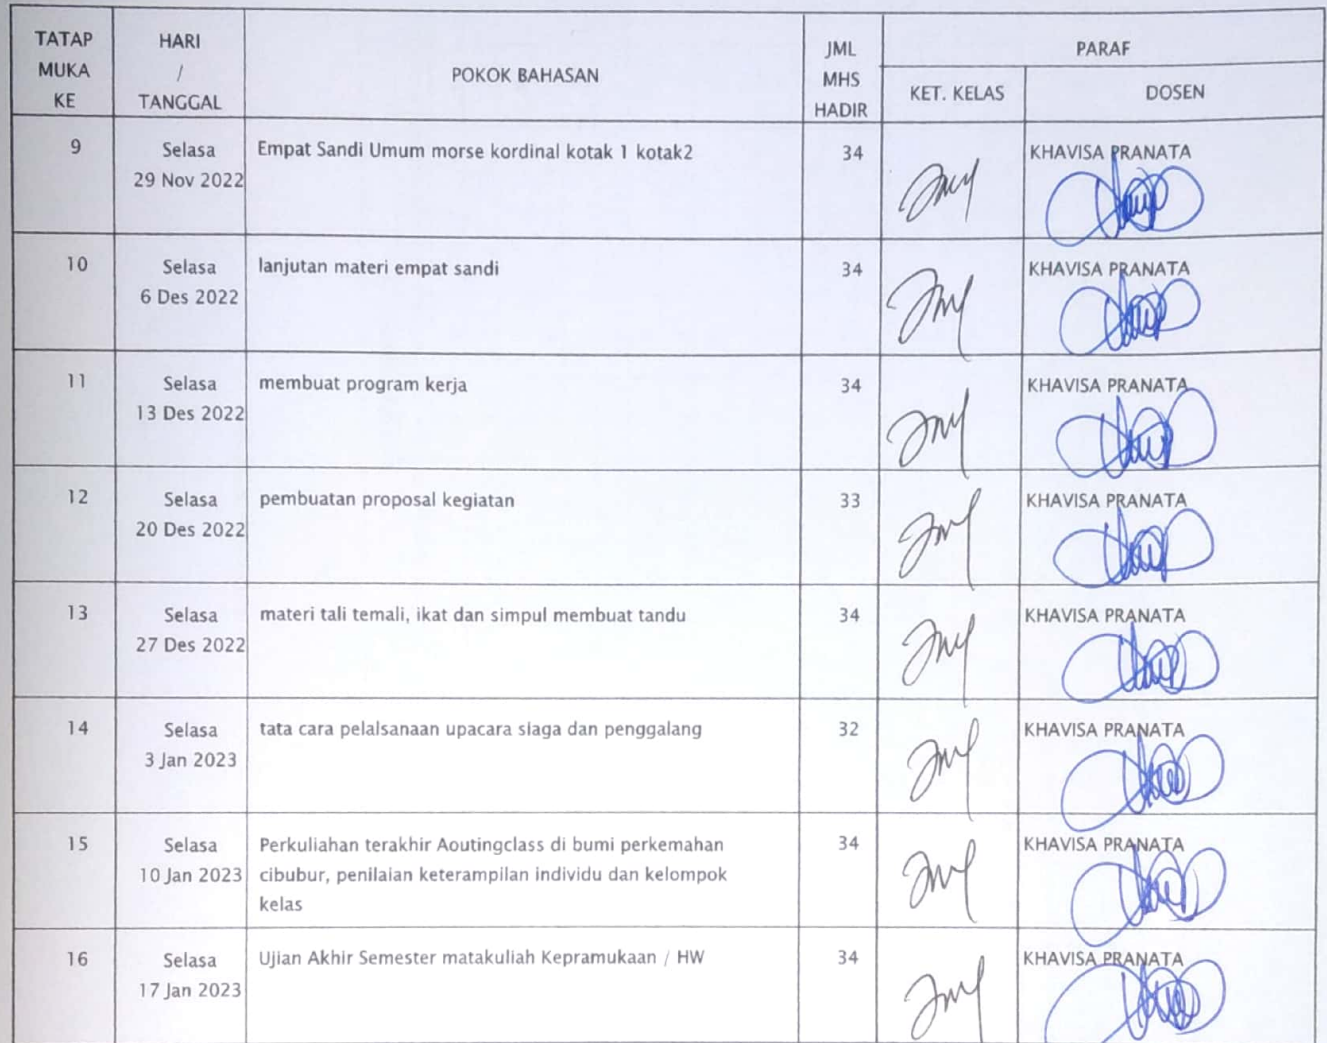 TATAP MUKA KE
HARI / TANGGAL
POKOK BAHASAN
JML MHS HADIR
PARAF
KET. KELAS
DOSEN
9
Selasa
29 Nov 2022
Empat Sandi Umum morse kordinal kotak 1 kotak2
34
KHAVISA PRANATA
10
Selasa
6 Des 2022
lanjutan materi empat sandi
34
KHAVISA PRANATA
11
Selasa
13 Des 2022
membuat program kerja
34
KHAVISA PRANATA
12
Selasa
20 Des 2022
pembuatan proposal kegiatan
33
KHAVISA PRANATA
13
Selasa
27 Des 2022
materi tali temali, ikat dan simpul membuat tandu
34
KHAVISA PRANATA
14
Selasa
3 Jan 2023
tata cara pelalsanaan upacara siaga dan penggalang
32
KHAVISA PRANATA
15
Selasa
10 Jan 2023
Perkuliahan terakhir Aoutingclass di bumi perkemahan
cibubur, penilaian keterampilan individu dan kelompok
kelas
34
KHAVISA PRANATA
16
Selasa
17 Jan 2023
Ujian Akhir Semester matakuliah Kepramukaan / HW
34
KHAVISA PRANATA